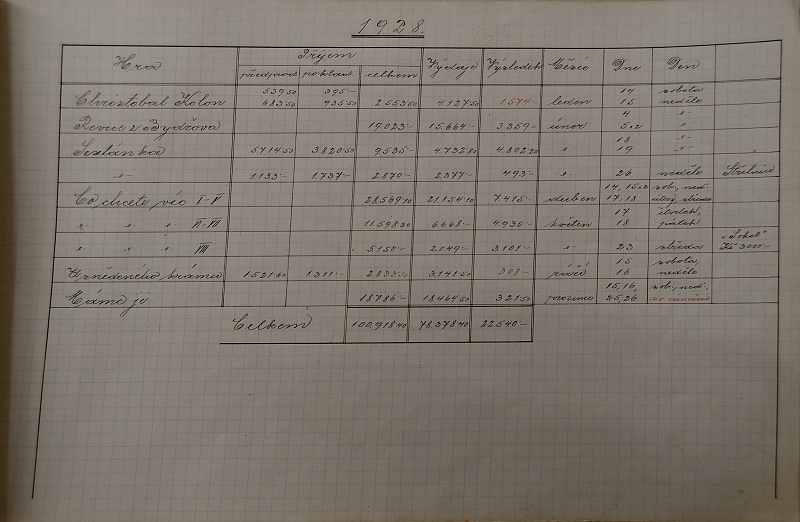 1928.
Hra Příjem Výdaje Výsledek Měsíc Dne Den
předprod. pokladn. celkem
539·50 395·- 14 sobota
Christobal Kolon 683·50 935·50 2.553·50 4.127·50 1.574·- leden 15 neděle
4 -"-
Revue z Bydžova 19.023·- 15.664·- 3.359·- únor 5. -"-
18 -"-
Sextánka 5.714·50 3.820·50 9.535·- 4.732·80 4.802·20 " 19 -"-
-"- 1.133·- 1.737·- 2.870·- 2.377·- 493·- -"- 26 neděle Střelnice
14, 15. sob., ned.
Co chcete víc I-V 28.569·10 21.154·10 7.415·- duben 17, 18 úterý, středa
17 čtvrtek,
" " " VI-VII 11.598·30 6.668·- 4.930·- květen 18 pátek
"Sokol"
" " " VIII 5.150·- 2.049·- 3.101·- -"- 23 středa Kč 3000·-
15 sobota,
U zněděného krámu 1.521·60 1.311·- 2.833·50 3.141·50 308·- září 16 neděle
15, 16, sob., ned.,
Máme je 18.786·- 18.464·50 321·50 prosinec 25, 26
Celkem 100.918·40 78.378·40 22.540·-